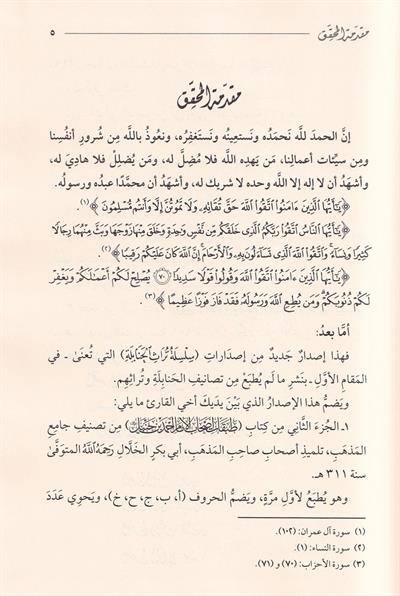 مقدمة المحقق ٥
مقدمة المحقق
إنَّ الحمدَ للَّه نَحمَدُه ونَستَعِينُه ونَستَغفِرُه، ونَعوذُ باللَّه مِن شُرورِ أنفُسِنا
ومِن سيِّئات أعمالِنا، مَن يَهدِه اللَّه فلا مُضِلَّ له، ومَن يُضلِل فلا هادِيَ له،
وأشهَدُ أن لا إله إلا اللَّه وحده لا شريك له، وأشهَدُ أن محمَّدًا عبدُه ورسولُه.
﴿يَٰٓأَيُّهَا ٱلَّذِينَ ءَامَنُوا۟ ٱتَّقُوا۟ ٱللَّهَ حَقَّ تُقَاتِهِۦ وَلَا تَمُوتُنَّ إِلَّا وَأَنتُم مُّسْلِمُونَ﴾(١).
﴿يَٰٓأَيُّهَا ٱلنَّاسُ ٱتَّقُوا۟ رَبَّكُمُ ٱلَّذِى خَلَقَكُم مِّن نَّفْسٍ وَٰحِدَةٍ وَخَلَقَ مِنْهَا زَوْجَهَا وَبَثَّ مِنْهُمَا رِجَالًا
كَثِيرًا وَنِسَآءً ۚ وَٱتَّقُوا۟ ٱللَّهَ ٱلَّذِى تَسَآءَلُونَ بِهِۦ وَٱلْأَرْحَامَ ۚ إِنَّ ٱللَّهَ كَانَ عَلَيْكُمْ رَقِيبًا﴾(٢).
﴿يَٰٓأَيُّهَا ٱلَّذِينَ ءَامَنُوا۟ ٱتَّقُوا۟ ٱللَّهَ وَقُولُوا۟ قَوْلًا سَدِيدًا ﴿٧٠﴾ يُصْلِحْ لَكُمْ أَعْمَٰلَكُمْ وَيَغْفِرْ
لَكُمْ ذُنُوبَكُمْ ۗ وَمَن يُطِعِ ٱللَّهَ وَرَسُولَهُۥ فَقَدْ فَازَ فَوْزًا عَظِيمًا﴾(٣).
أمَّا بعدُ:
فهذا إصدارٌ جَديدٌ مِن إصدَاراتِ (سِلْسِلَةُ تُرَاثِ الْحَنَابِلَةِ) التي تُعنَى - في
المَقامِ الأوَّلِ - بنَشرِ ما لَم يُطبَعْ مِن تَصانيفِ الحَنابِلَةِ وتُراثِهِم.
ويَضمُّ هذا الإصدارُ الذي بَيْنَ يدَيكَ أخي القارئ ما يلي:
١ـ الجُزءَ الثَّاني مِن كِتابِ (طبقات أصحاب الإمام أحمد بن حنبل) مِن تصنيفِ جامِعِ
المَذهَبِ، تلميذِ أصحابِ صاحِبِ المَذهَبِ، أبي بكرٍ الخَلَّال رَحِمَهُ اللَّهُ المتوفَّىٰ
سنة ٣١١ هـ.
وهو يُطبَعُ لأوَّلِ مرَّةٍ، ويَضمُّ الحروف (أ، ب، ج، ح، خ)، ويَحوِي عَدَدَ
(١) سورة آل عمران: (١٠٢).
(٢) سورة النساء: (١).
(٣) سورة الأحزاب: (٧٠) و (٧١).